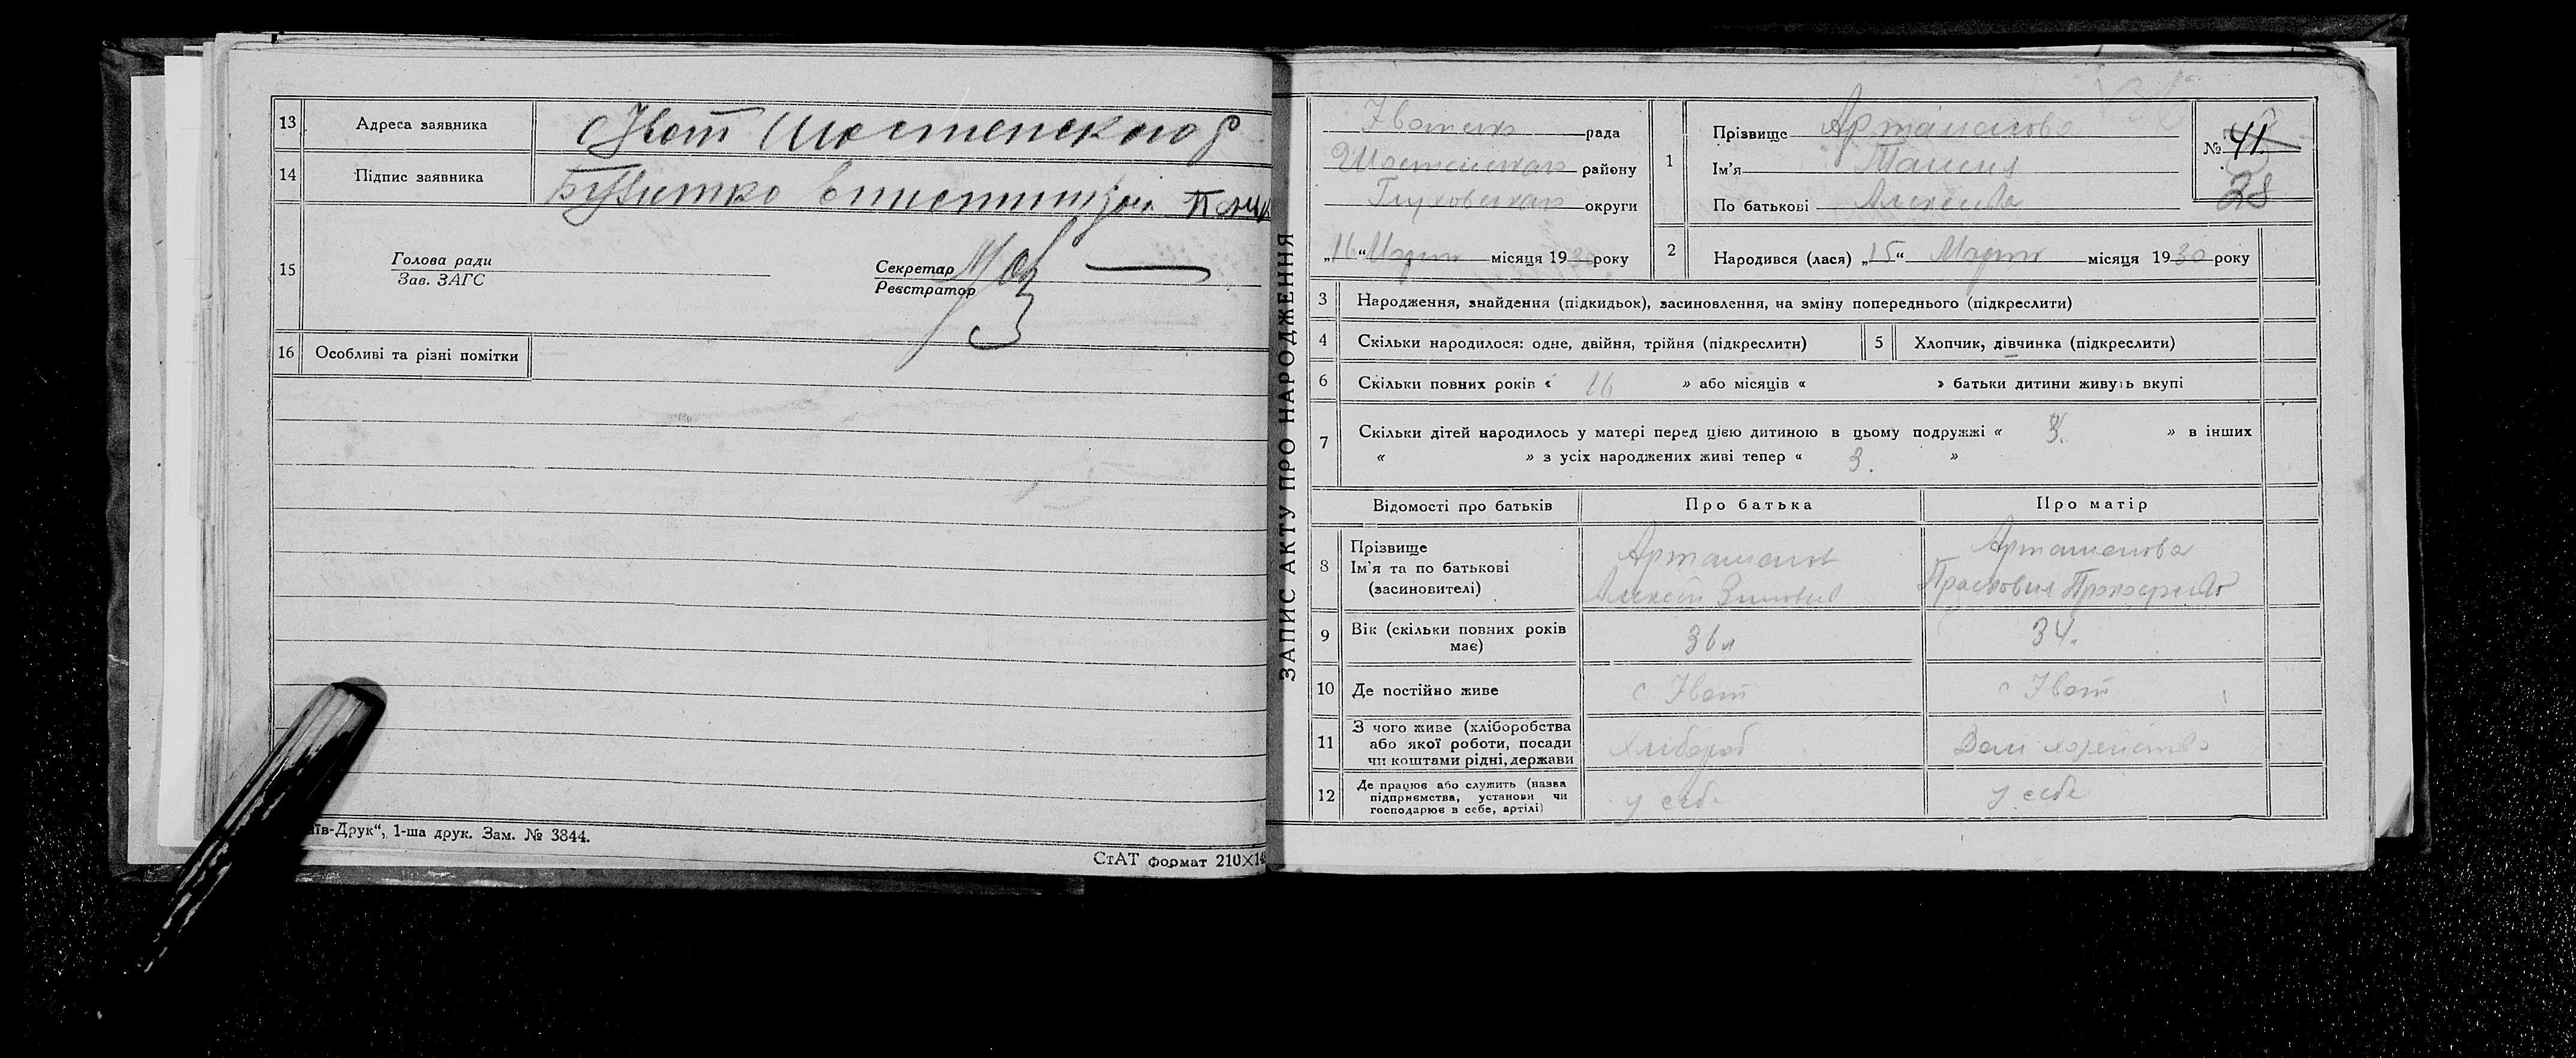 13 Адреса заявника с Ивот Шостенского р
14 Підпис заявника
15 Голова ради
Зав. ЗАГС
Секретар
Реєстратор
16 Особливі та різні помітки
їв-Друк“, 1-ша друк. Зам. № 3844.
СтАТ формат 210×14
ЗАПИС АКТУ ПРО НАРОДЖЕННЯ
рада
району
округи
„16“ Марта місяця 1930 року
1 Прізвище Артамонова
Ім'я
По батькові
№ 41.
28
2 Народився (лася) „15“ Марта місяця 1930 року
3 Народження, знайдення (підкидьок), засиновлення, на зміну попереднього (підкреслити)
4 Скільки народилося: одне, двійня, трійня (підкреслити)
5 Хлопчик, дівчинка (підкреслити)
6 Скільки повних років « 16 » або місяців « » батьки дитини живуть вкупі
7 Скільки дітей народилось у матері перед цією дитиною в цьому подружжі « 3. » в інших
« » з усіх народжених живі тепер « 3. »
Відомості про батьків Про батька Про матір
8 Прізвище
Ім'я та по батькові
(засиновителі)
Артамонов
Алексей
Артамонова
Прасковья
9 Вік (скільки повних років
має)
36 л
34.
10 Де постійно живе с Ивот с Ивот
11 З чого живе (хліборобства
або якої роботи, посади
чи коштами рідні, держави
Хлібороб
Дом хозяйство
12 Де працює або служить (назва
підприємства, установи чи
господарює в себе, артілі)
у себе
у себе